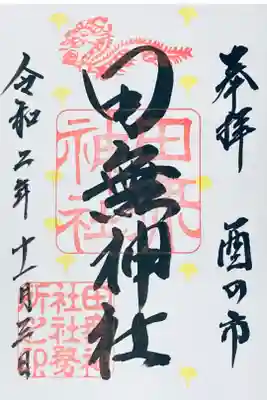 奉拝 酉の市
田無神社
田無神社
令和二年十一月 日
田無神社社務所之印